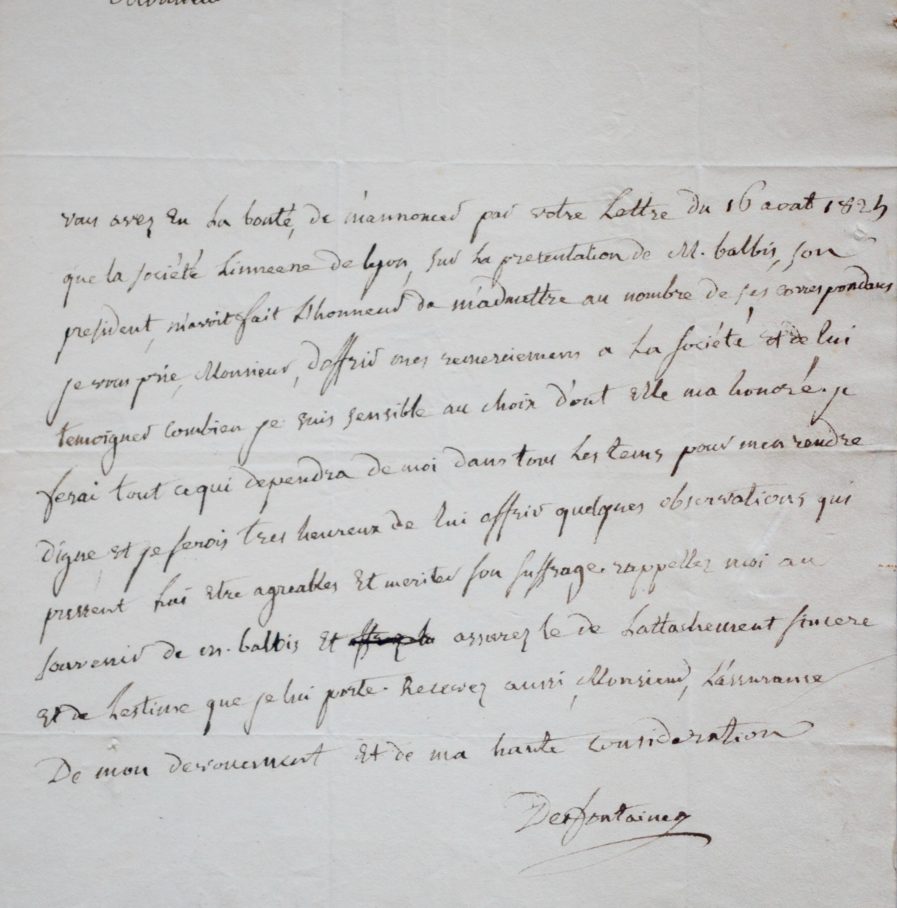 vous avez eu la bonté, de m'annoncer par votre Lettre du 16 avat 1825
que la société Linneene de lyon, sur la presentation de M. balbis, son
president, m'avoit fait L'honneur de m'admettre au nombre de ses correspondans
je vous prie, Monsieur, d'offrir mes remerciemens a La société et de lui
temoigner combien je suis sensible au choix d'ont elle ma honoré. je
ferai tout ce qui dependra de moi dans tous Les tems pour men rendre
digne, et je serois tres heureux de lui offrir quelques observations qui
pussent lui etre agreables et meriter son suffrage. rappellez moi au
souvenir de m. balbis et assurez le de L'attachement sincere
et de L'estime que je lui porte. Recevez aussi, Monsieur, L'assurance
De mon devouement et de ma haute consideration
Desfontaines